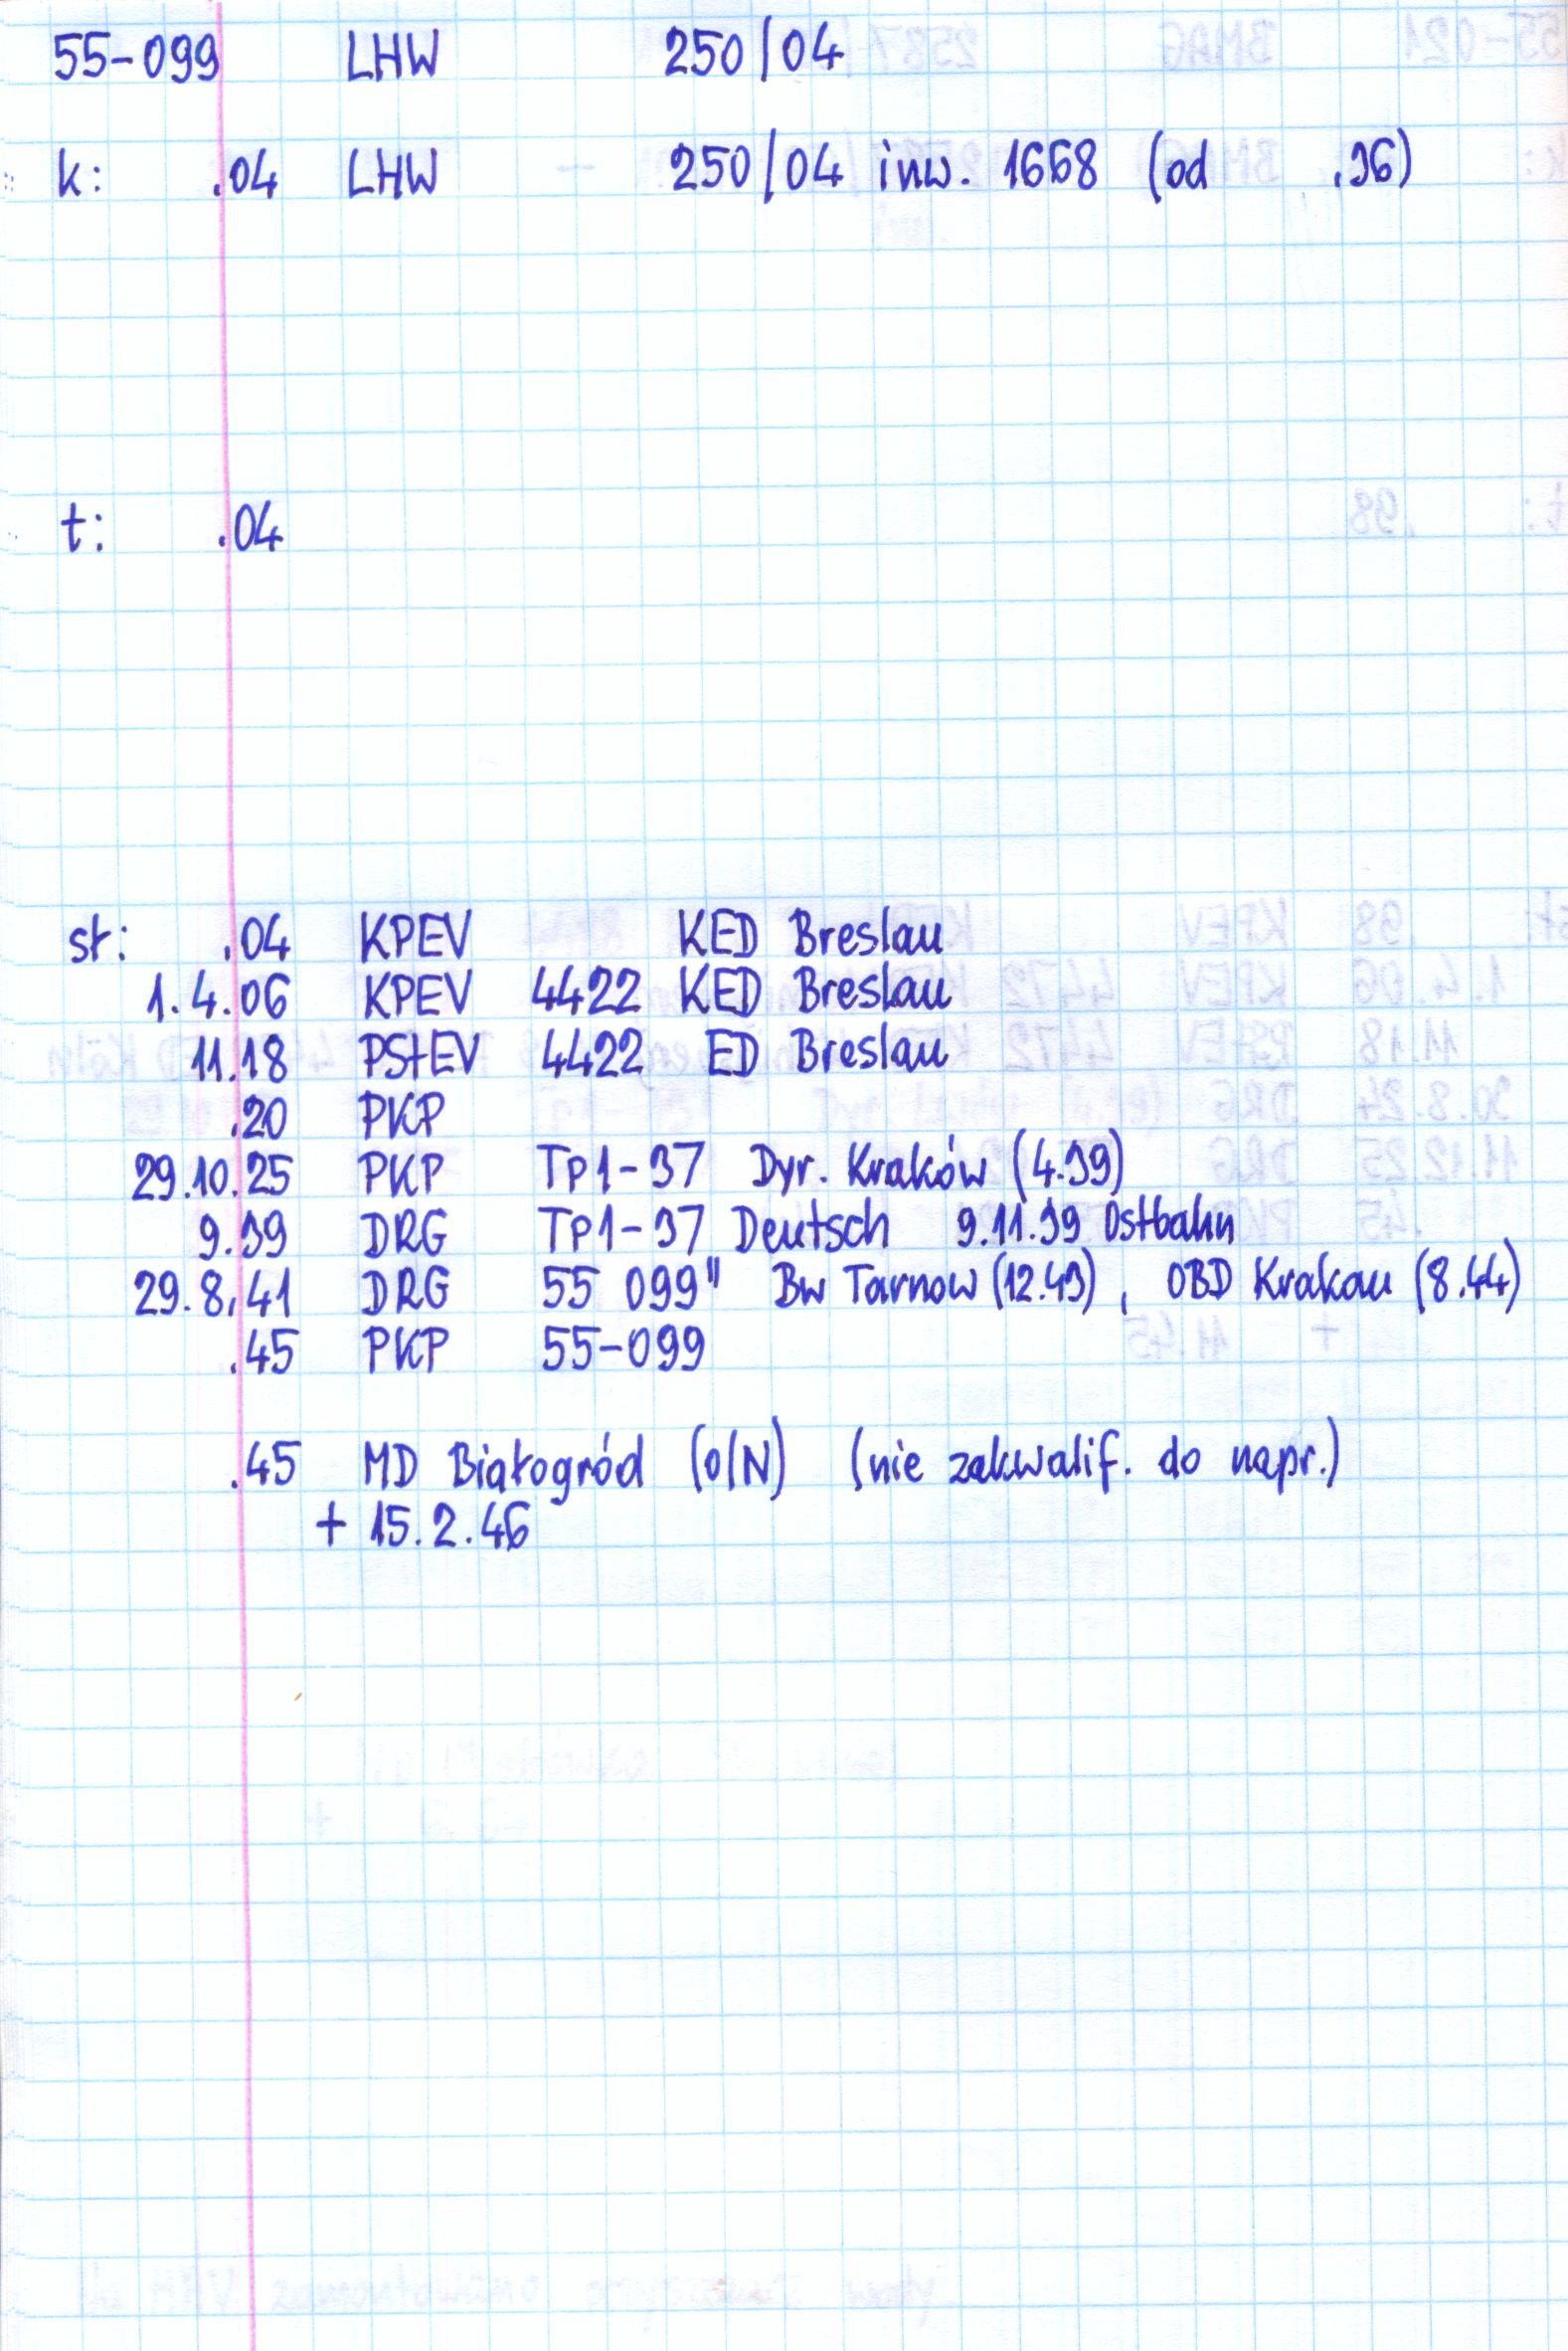 55-099 LHW 250/04
k: .04 LHW 250/04 inw. 1668 (od .36)
t: .04
sł: .04 KPEV KED Breslau
1.4.06 KPEV 4422 KED Breslau
11.18 PStEV 4422 ED Breslau
.20 PKP
29.10.25 PKP Tp1-37 Dyr. Kraków (4.39)
9.39 DRG Tp1-37 Deutsch 9.11.39 Ostbahn
29.8.41 DRG 55 099" Bw Tarnow (12.43), OBD Krakau (8.44)
.45 PKP 55-099
.45 MD Białogród (o/N) (nie zakwalif. do napr.)
+ 15.2.46